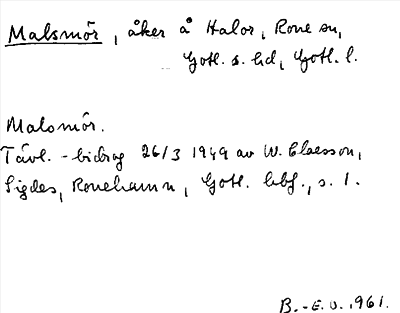 Malsmör, åker å Halor, Rone sn,
Gotl. s. hd, Gotl. l.
Malsmör.
Tävl.-bidrag 26/3 1949 av W. Claesson,
Sigdes, Ronehamn, Gotl. hbf., s. 1.
B.-E. O. 1961.